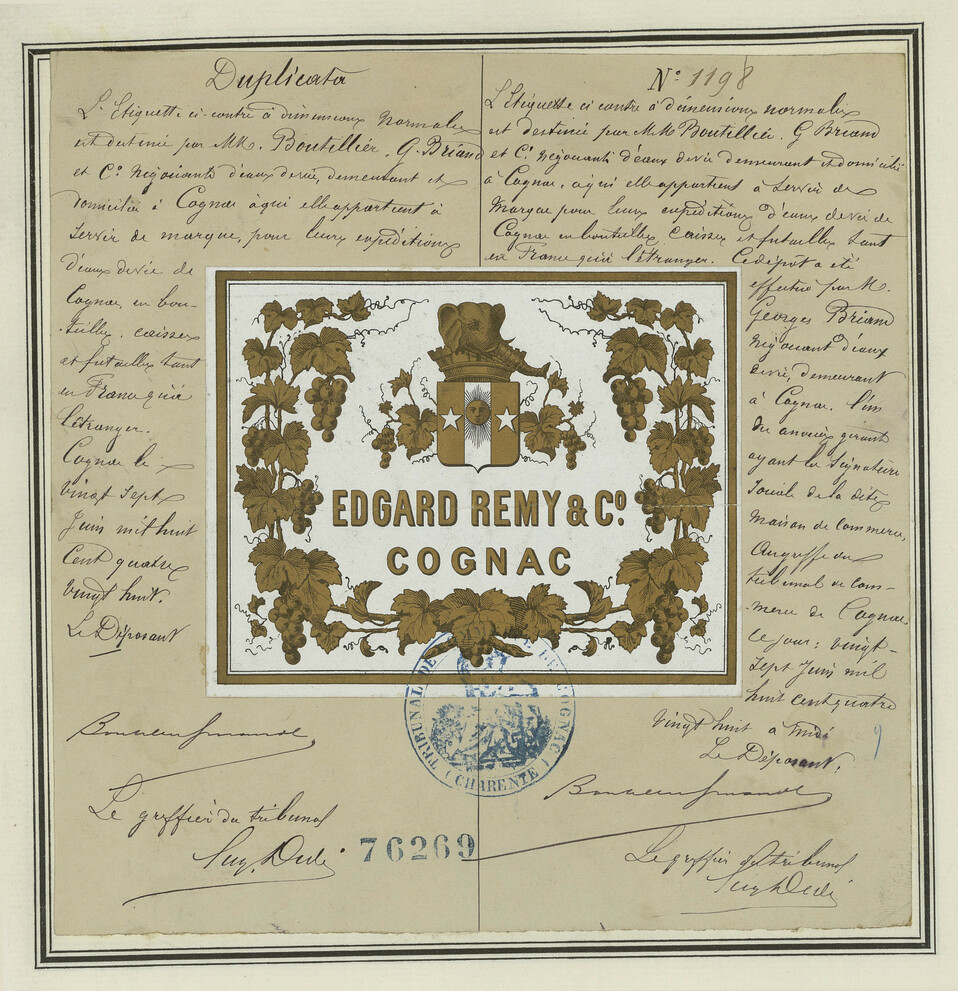 Duplicata
L'Etiquette ci-contre à dimensions normales
est destinée par MM. Boutellier, G. Briand
et Cº. Négociants d'eaux de vie, demeurant et
domiciliés à Cognac à qui elle appartient à
servir de marque, pour leurs expéditions
d'eaux de vie de
Cognac, en bou-
teilles, caisses
et futailles tant
en France qu'à
l'étranger.
Cognac le
vingt sept
Juin mil huit
Cent quatre
vingt huit.
Le Déposant
Le greffier du tribunal
Nº 1198
L'Etiquette ci contre à dimensions normales
est destinée par MM Boutellier, G Briand
et Cº. négociants d'eaux de vie demeurant et domiciliés
à Cognac, à qui elle appartient à servir de
Marque pour leurs expéditions d'eaux de vie de
Cognac en bouteilles, caisses et futailles tant
en France qu'à l'étranger. Ce dépôt a été
effectué par M.
Georges Briand
Négociant d'eaux
de vie, demeurant
à Cognac. l'un
des associés gérant
ayant la Signature
Sociale de la dite
Maison de Commerce,
Au greffe du
tribunal de Com-
merce de Cognac
ce jour: vingt-
sept Juin mil
huit cent quatre
vingt huit à midi
Le Déposant,
Le greffier du tribunal
EDGARD REMY & Cº.
COGNAC
TRIBUNAL DE COGNAC
(CHARENTE)
76269